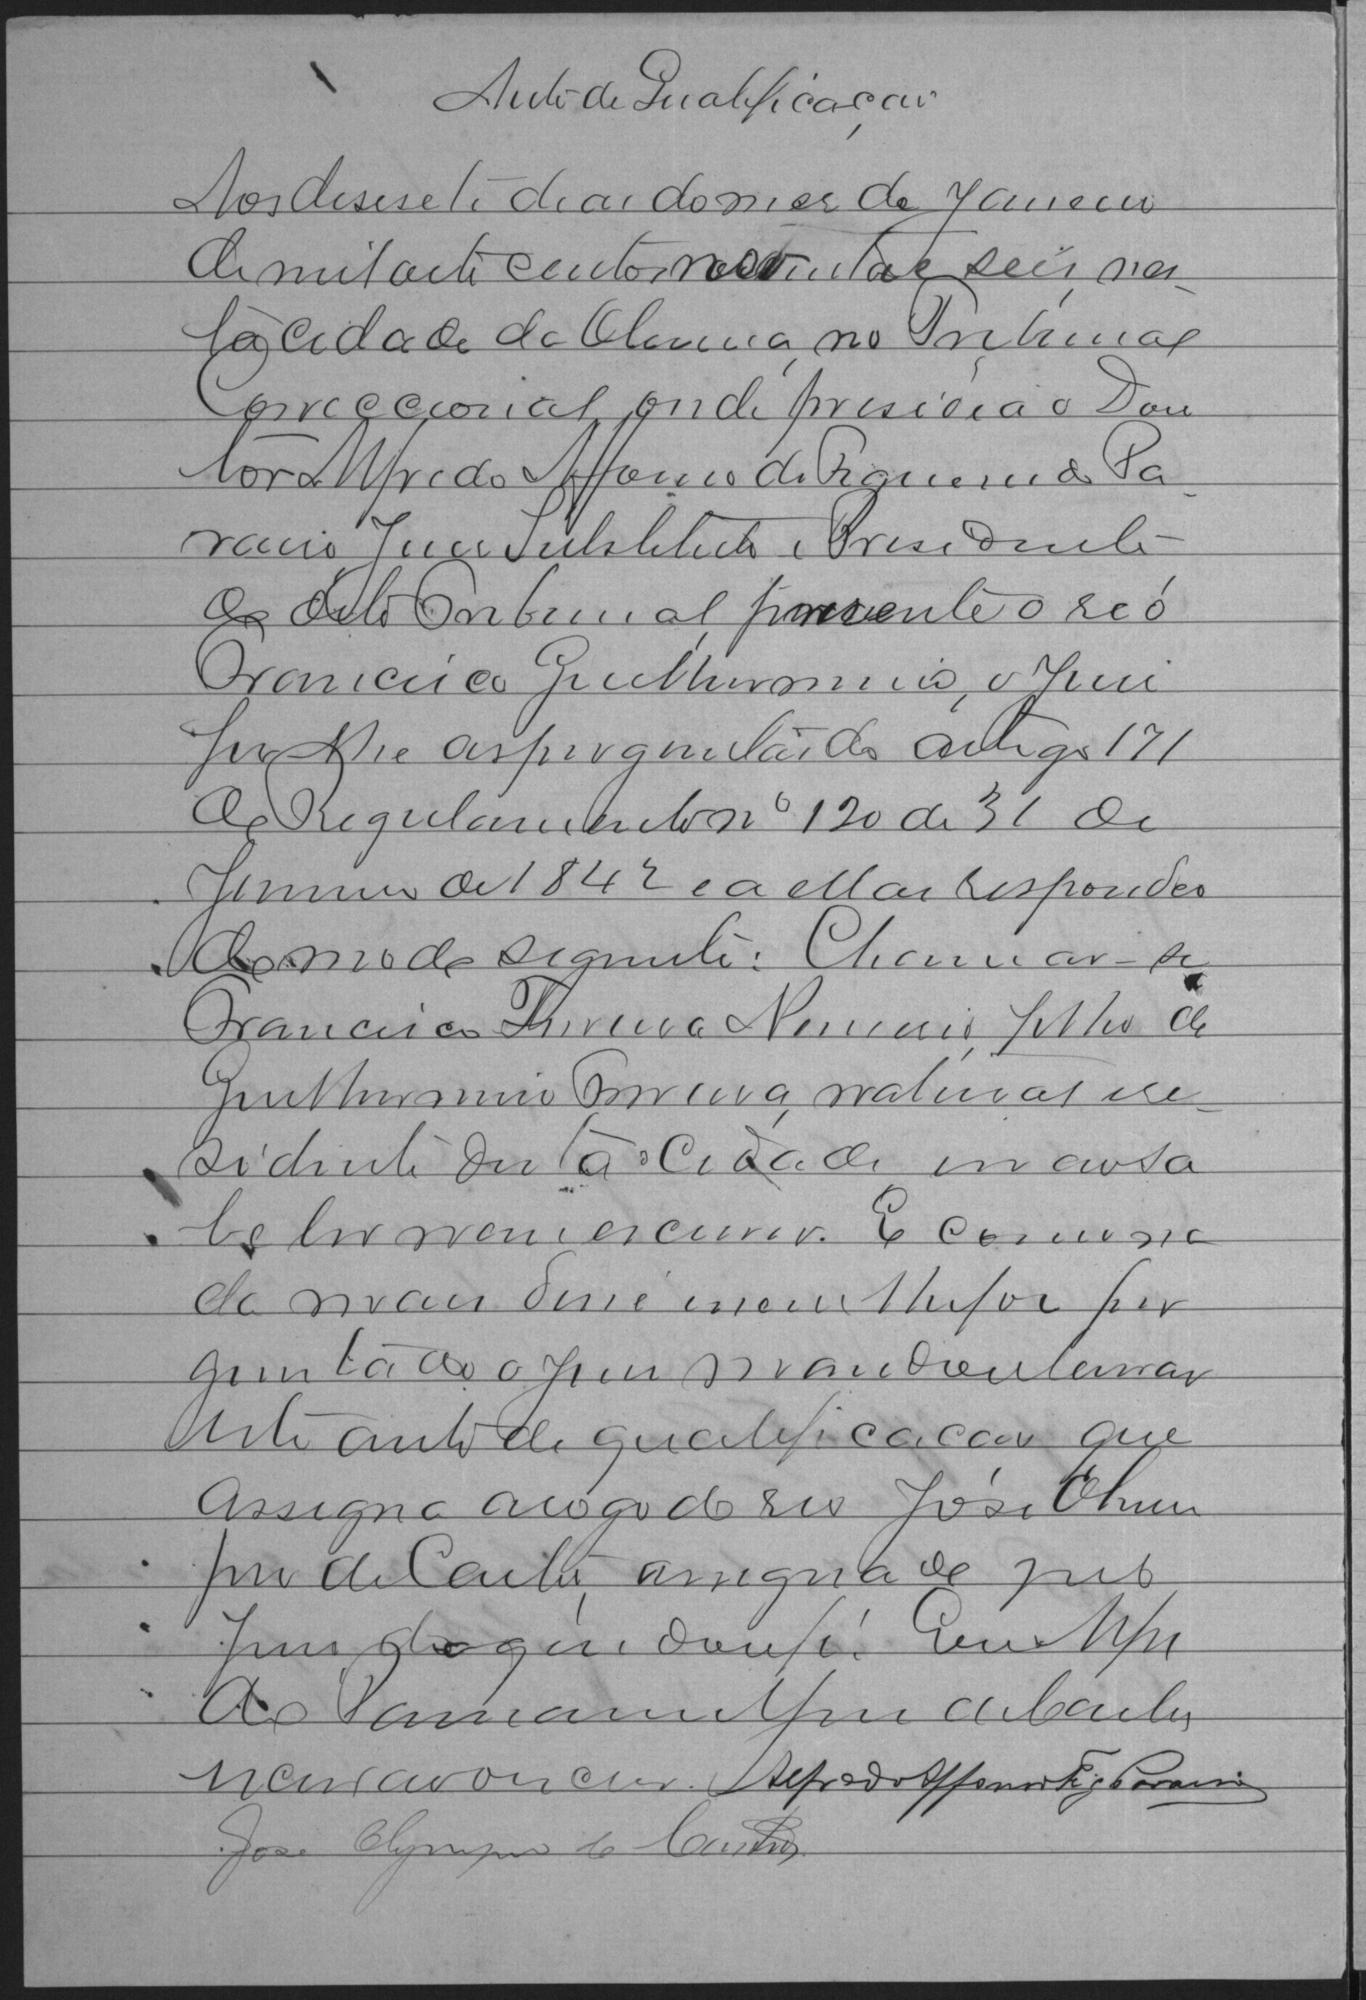 Auto de Qualificação
Aos desesete dias do mes de Janeiro
de mil oito centos noventa e seis, nes-
ta cidade de Oliveira, no Tribunal
Correccional, onde presidia o Dou
tor Alfredo Affonso de Figueiredo Pa-
raiso, Juiz Substituto e Presidente
do dito Tribunal, presente o reó
Francisco Guilhermino, o Juiz
fez-lhe as perguntas do artigo 171
do Regulamento nº 120 de 31 de
Janeiro de 1842 e a ellas respondeo
do modo seguinte: Chamar-se
Francisco Ferreira, filho de
Guilhermino Ferreira, natural e re-
sidente desta Cidade
ler nem escrever. E como na
da mais disse nem lhe foi per
guntado o Juiz mandou lavrar
este auto de qualificacão que
assigna a rogo do reo José Olim
pio de Castro, assignado pelo
Juiz, do que dou fé. Eu Alfre
do
escrivão escrevi. Alfredo Affonso Fig Paraiso
José Olympio de Castro